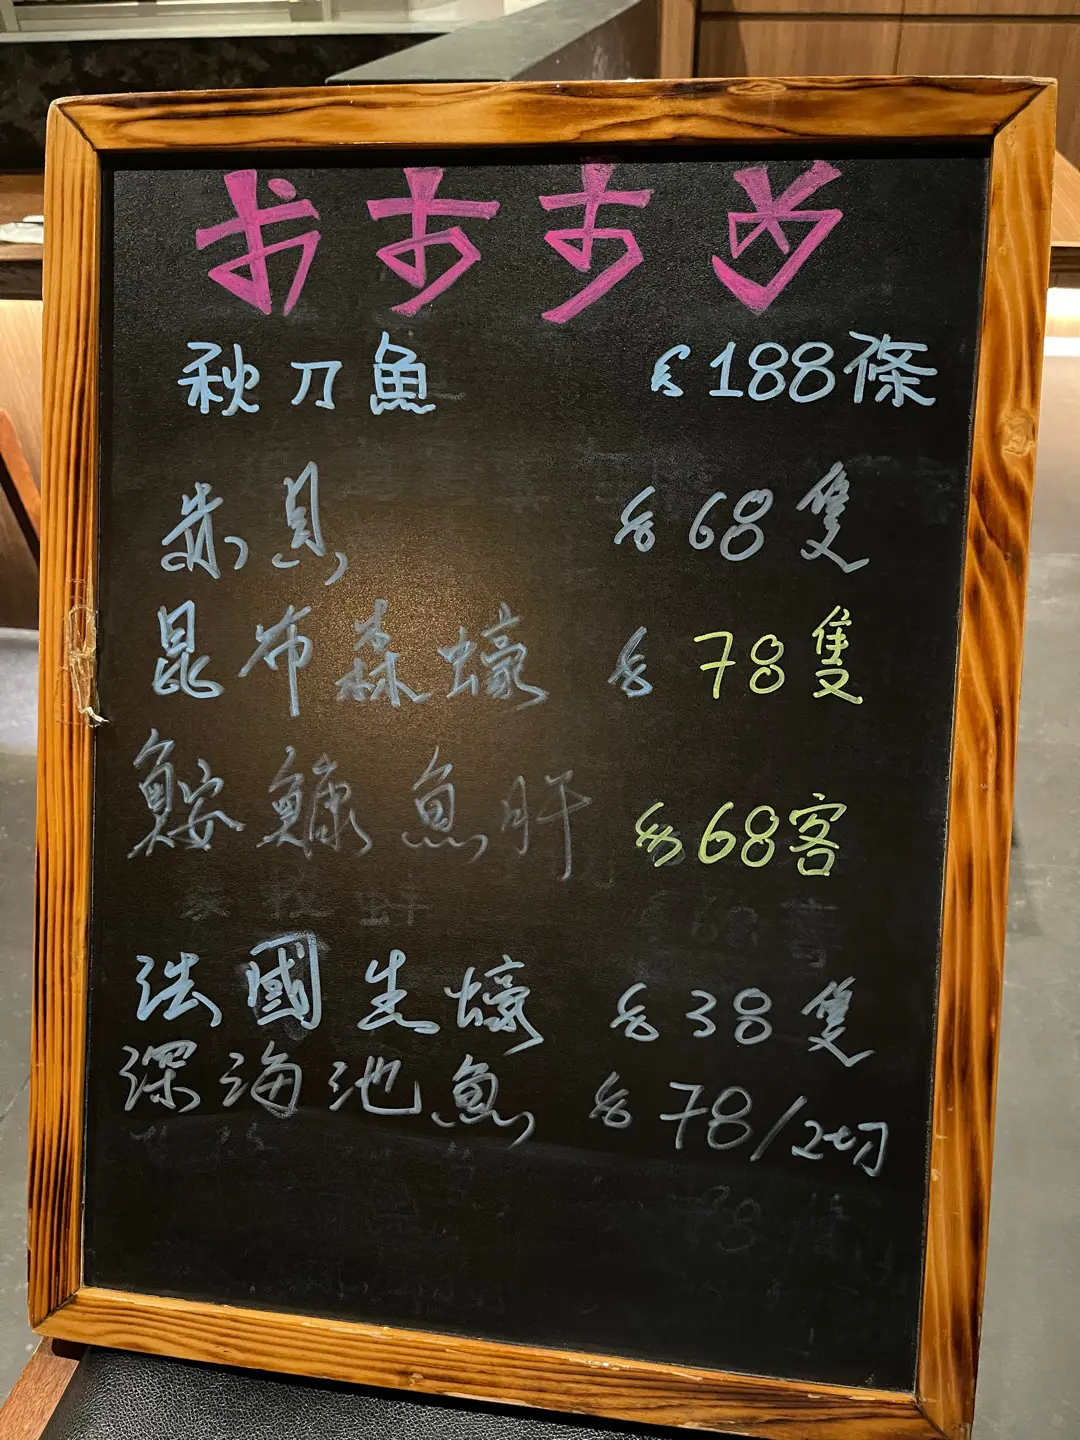 おすすめ
秋刀魚 每188條
赤貝 每68隻
昆布森蠔 每78隻
鮟鱇魚肝 每68客
法國生蠔 每38隻
深海池魚 每78/2切